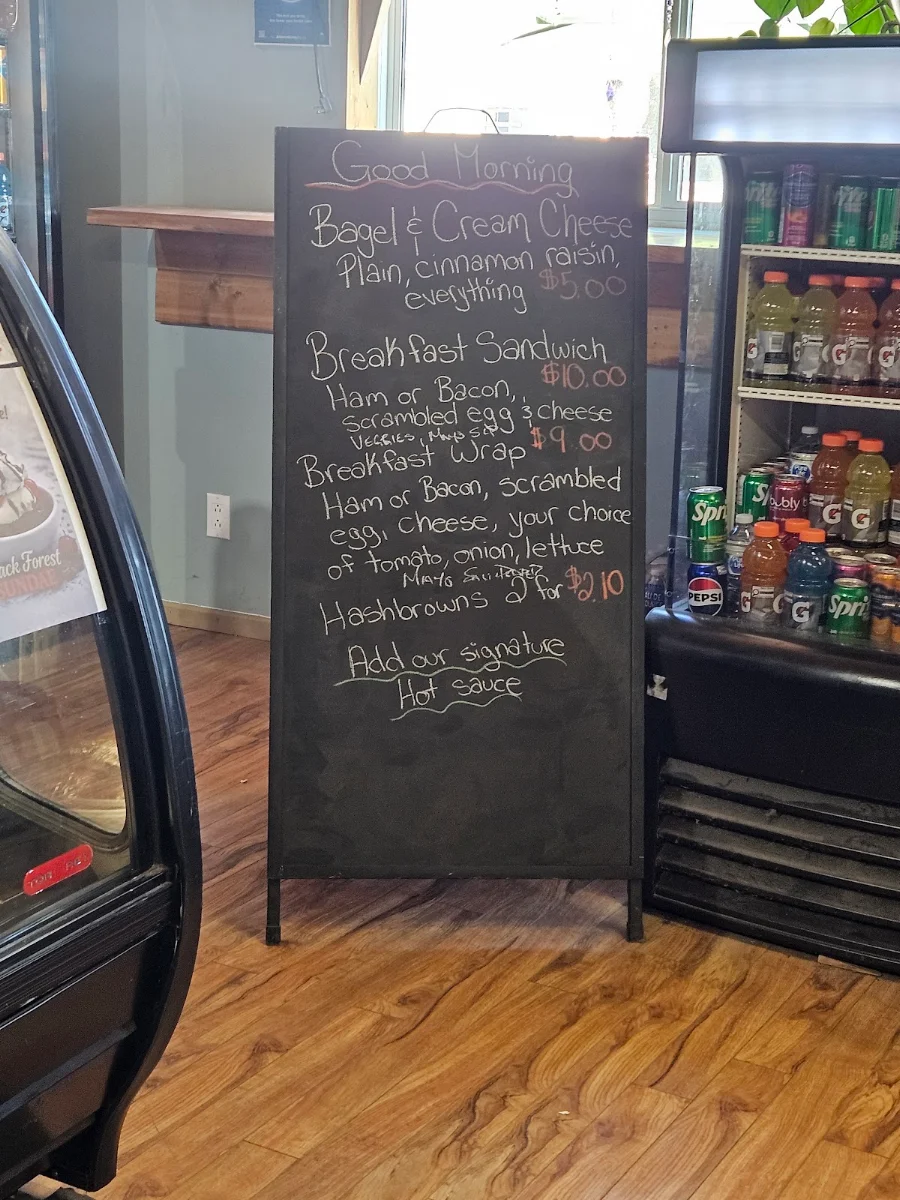 Good Morning
Bagel & Cream Cheese
Plain, cinnamon raisin,
everything $5.00
Breakfast Sandwich
$10.00
Ham or Bacon,
scrambled egg & cheese
VEGGIES, MAYO S&P
Breakfast Wrap $9.00
Ham or Bacon, scrambled
egg, cheese, your choice
of tomato, onion, lettuce
MAYO
Hashbrowns 2 for $2.10
Add our signature
Hot sauce
Black Forest
SUNDAE
Spri
bubly
G
G
PEPSI
G
G
Spri